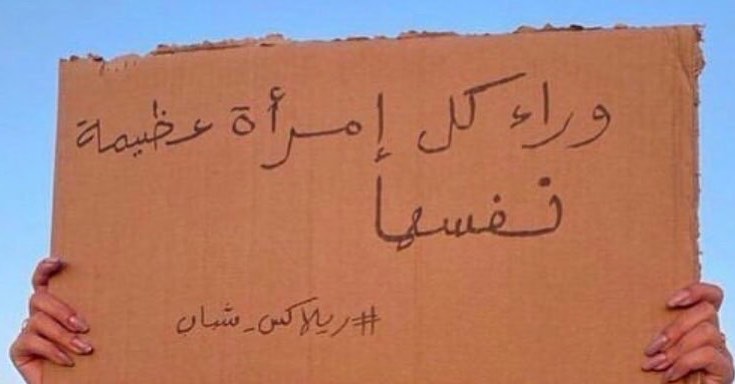 وراء كل إمرأة عظيمة
نفسها
#ريلاكس_شباب